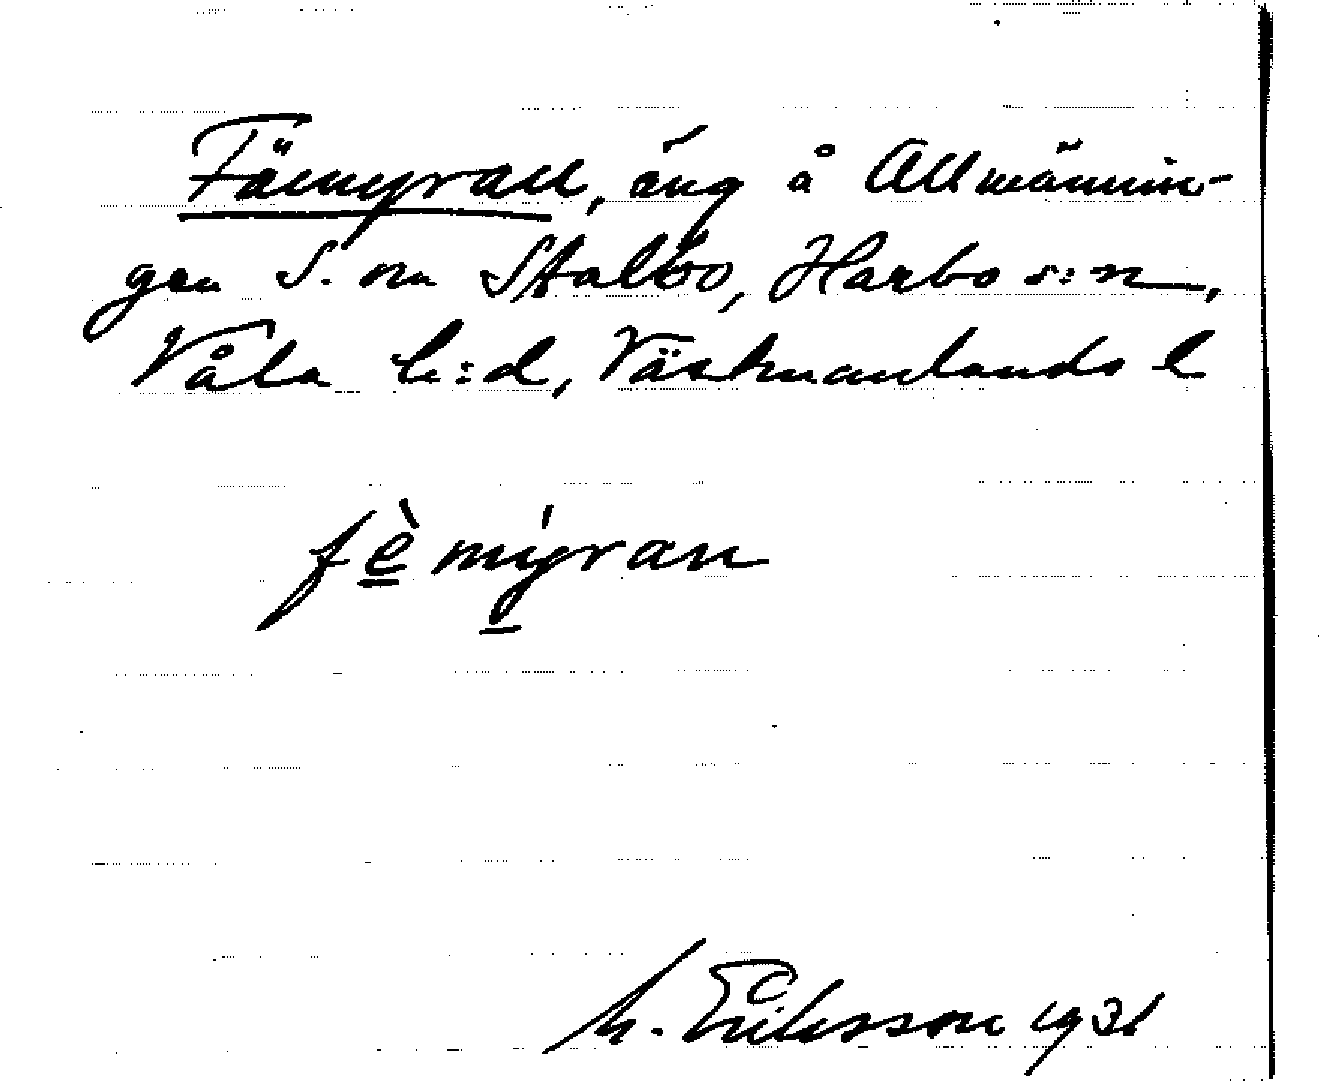 Fämyran, äng å Allmännin-
gen S. om Stalbo, Harbo s:n,
Våla h:d, Västmanlands l
fè̱mýran
M. Eriksson 1931